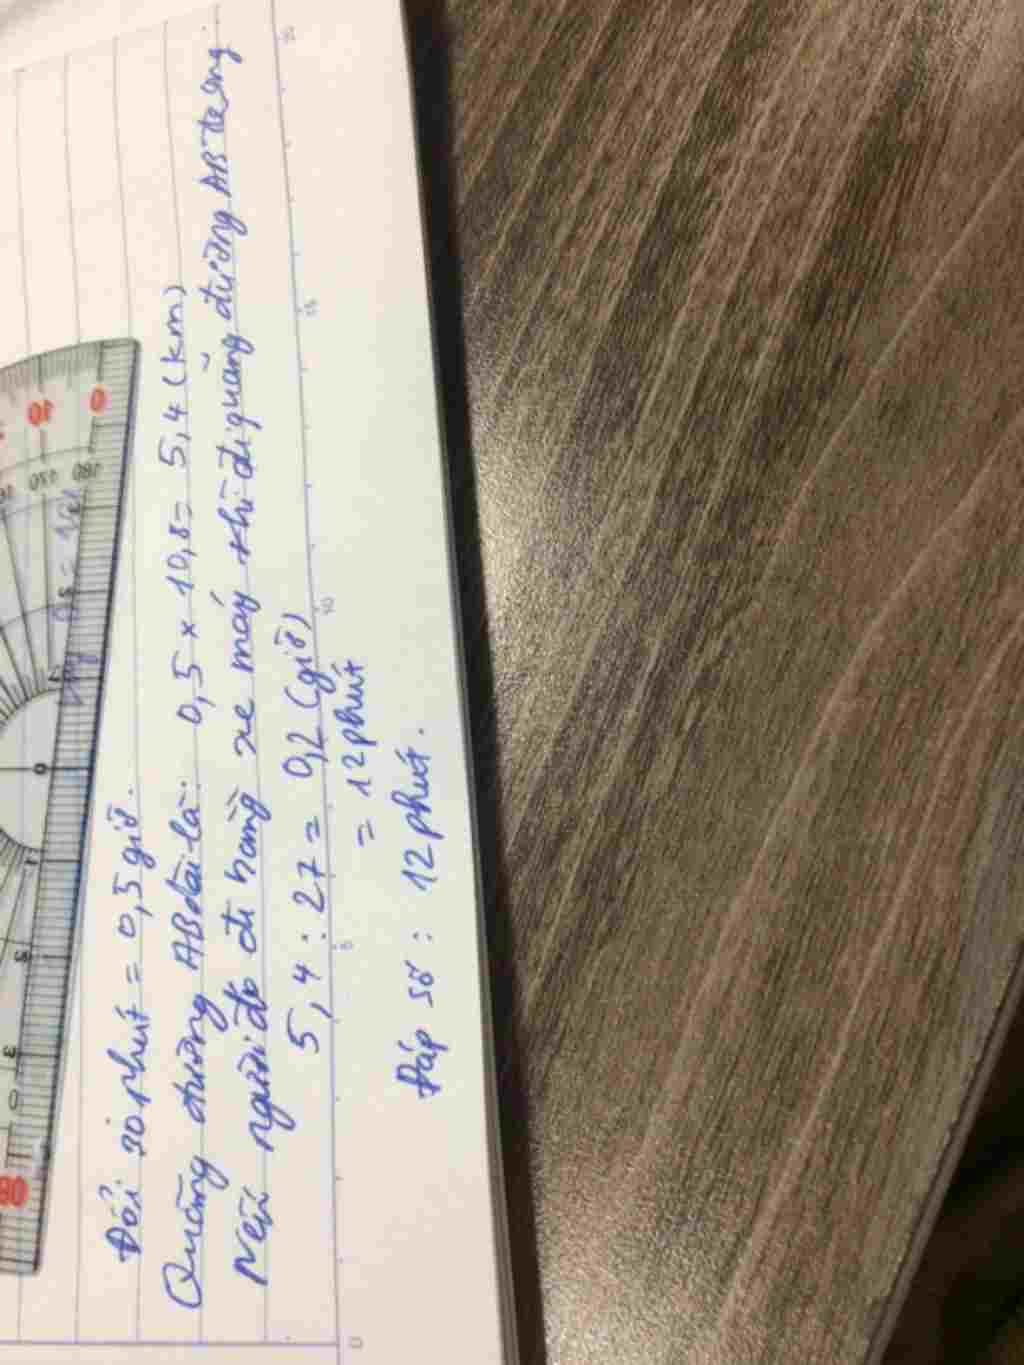 Đổi 30 phút = 0,5 giờ.
Quãng đường AB dài là: 0,5 x 10,8 = 5,4 (km)
Nếu người đó đi bằng xe máy thì đi quãng đường AB trong
5,4 : 27 = 0,2 (giờ)
= 12 phút
Đáp số : 12 phút.
0
10
180
170
0
5
10
15
20